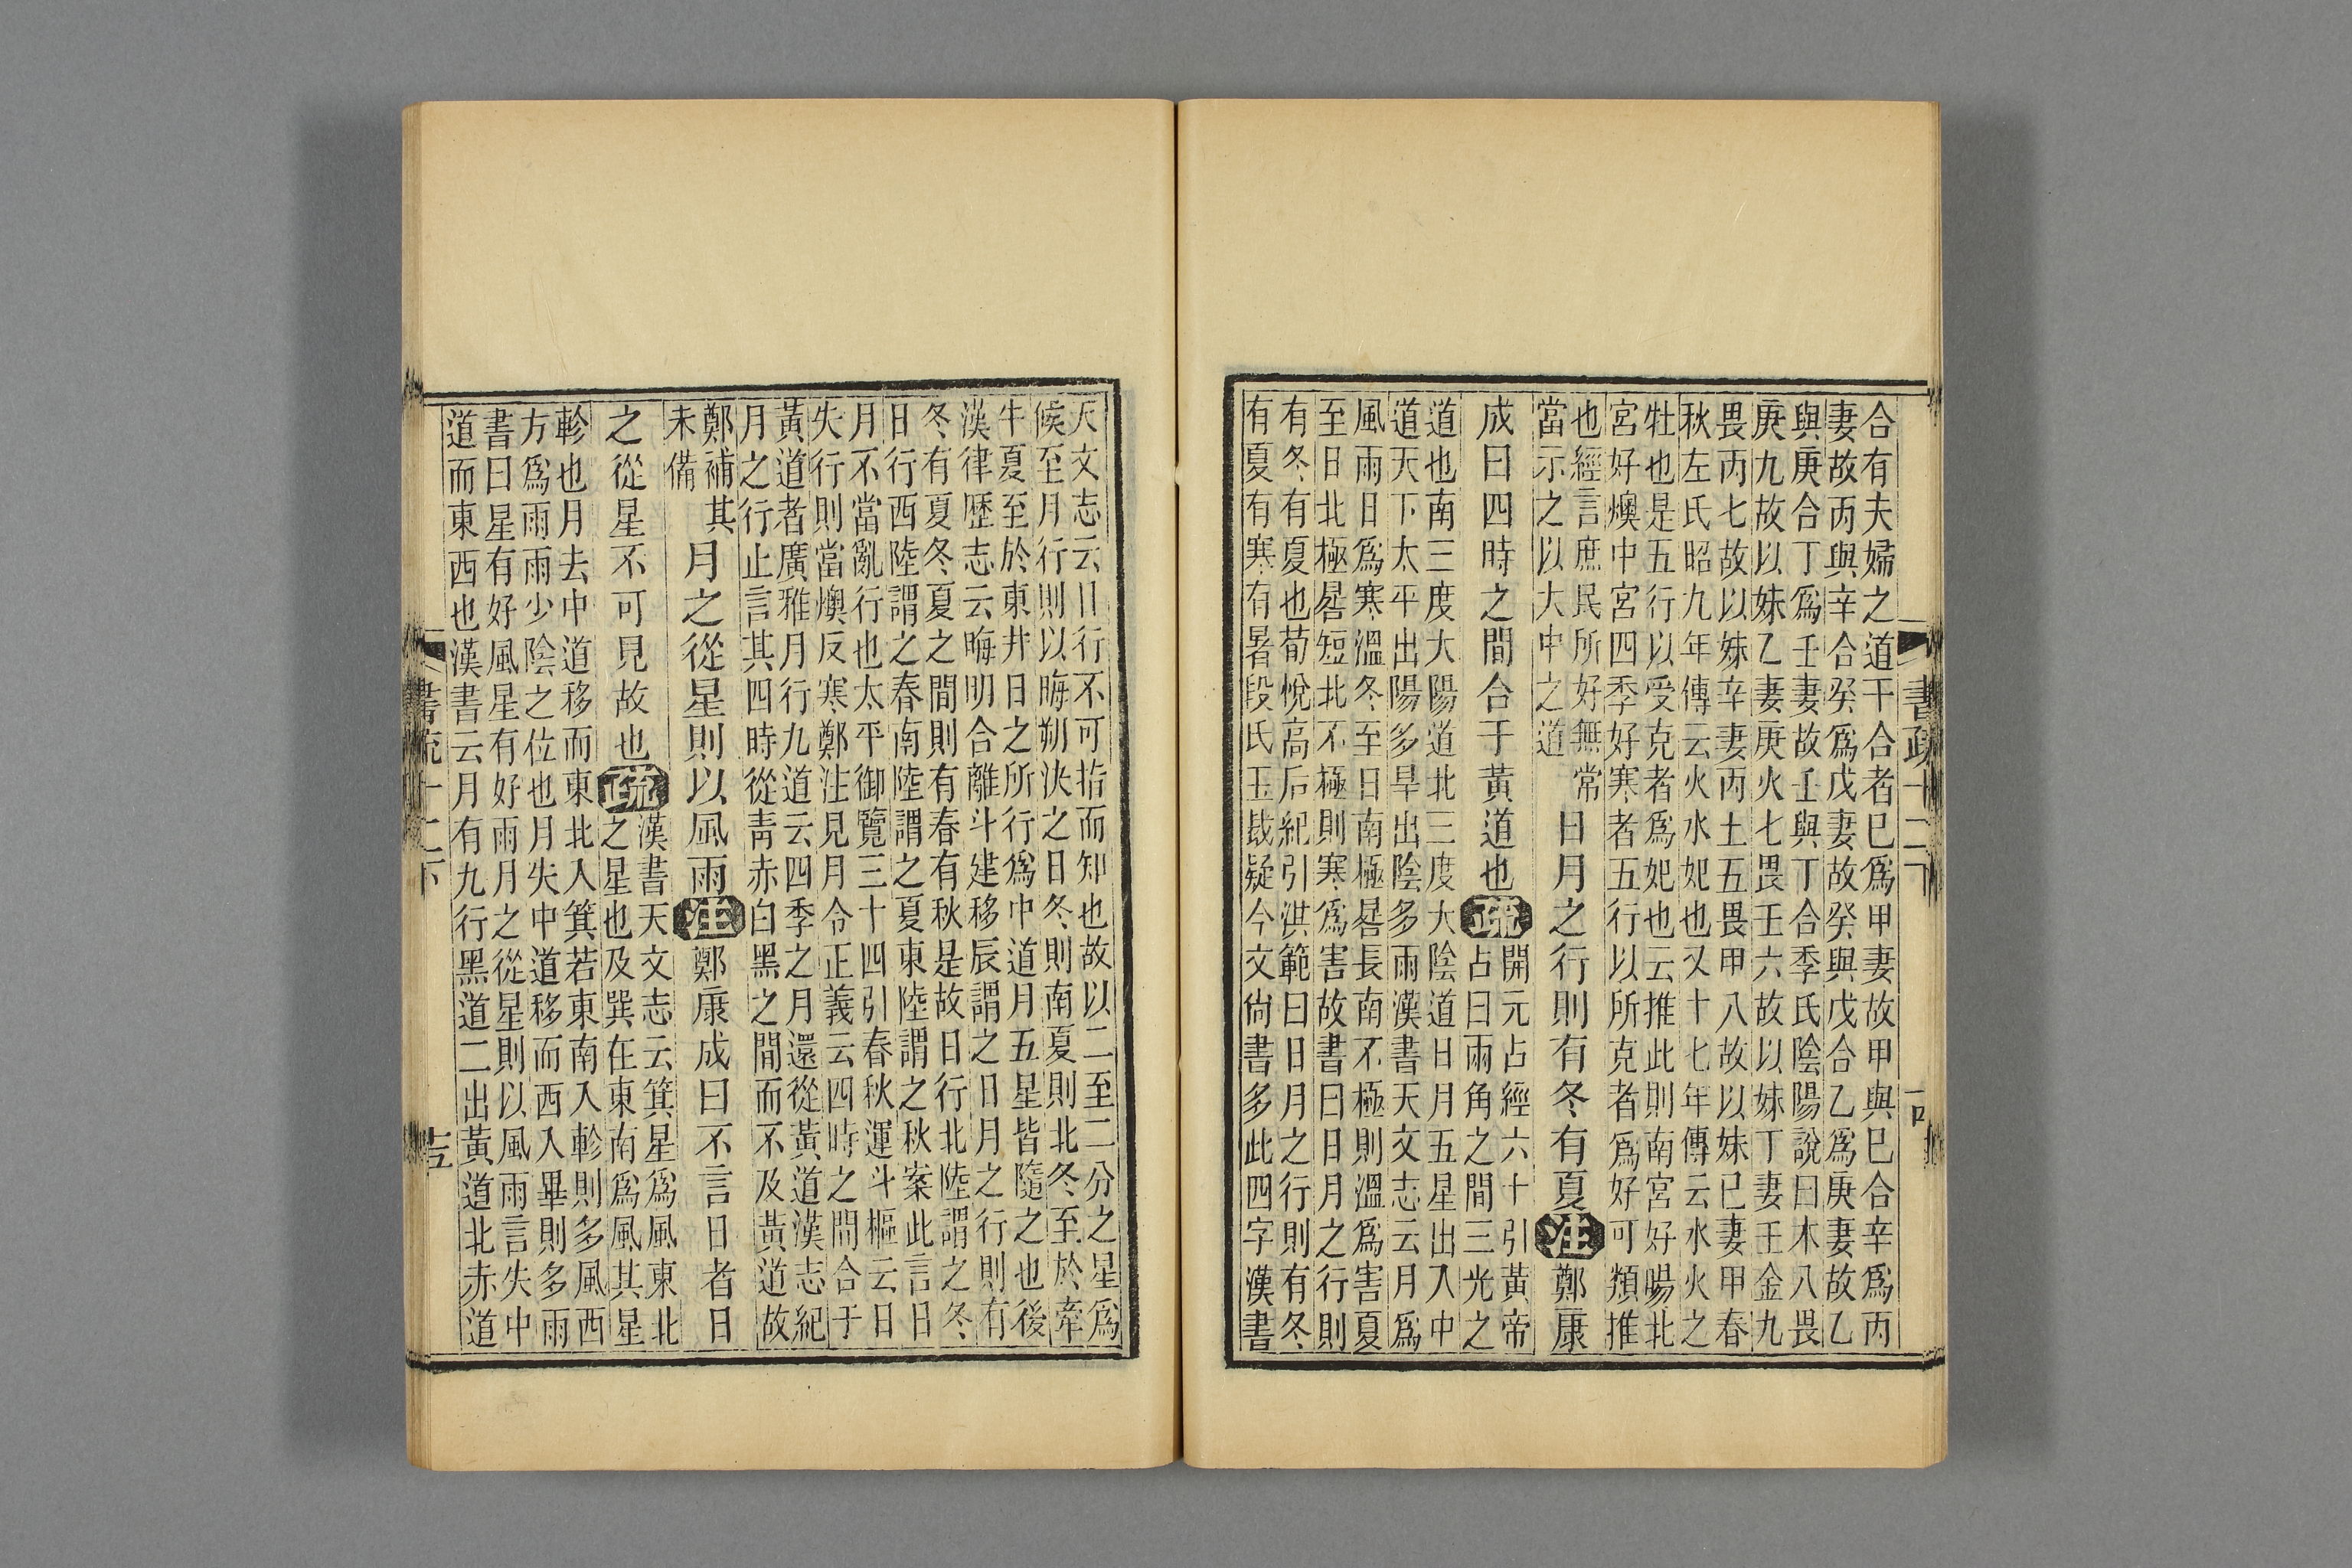 合有夫婦之道干合者巳爲甲妻故甲與巳合辛爲丙
妻故丙與辛合癸爲戊妻故癸與戊合乙爲庚妻故乙
與庚合丁爲壬妻故壬與丁合季氏陰陽說曰木八畏
庚九故以妹乙妻庚火七畏壬六故以妹丁妻壬金九
畏丙七故以妹辛妻丙土五畏甲八故以妹巳妻甲春
秋左氏昭九年傳云火水妃也又十七年傳云水火之
牡也是五行以受克者爲妃也云推此則南宮好暘北
宮好燠中宮四季好寒者五行以所克者爲好可類推
也經言庶民所好無常
當示之以大中之道
日月之行則有冬有夏注鄭康
成曰四時之間合于黃道也疏
開元占經六十引黃帝
占曰兩角之間三光之
道也南三度大陽道北三度大陰道日月五星出入中
道天下太平出陽多旱出陰多雨漢書天文志云月爲
風雨日爲寒溫冬至日南極晷長南不極則溫爲害夏
至日北極晷短北不極則寒爲害故書曰日月之行則
有冬有夏也荀悅高后紀引洪範曰日月之行則有冬
有夏有寒有暑段氏玉裁疑今文尙書多此四字漢書
書疏十二下
十四
天文志云日行不可指而知也故以二至二分之星爲
候至月行則以晦朔決之日冬則南夏則北冬至於牽
牛夏至於東井日之所行爲中道月五星皆隨之也後
漢律歷志云晦明合離斗建移辰謂之日月之行則有
冬有夏冬夏之間則有春有秋是故日行北陸謂之冬
日行西陸謂之春南陸謂之夏東陸謂之秋案此言日
月不當亂行也太平御覽三十四引春秋運斗樞云日
失行則當燠反寒鄭注見月令正義云四時之間合于
黃道者廣雅月行九道云四季之月還從黃道漢志紀
月之行止言其四時從靑赤白黑之間而不及黃道故
鄭補其
未備
月之從星則以風雨注鄭康成曰不言日者日
之從星不可見故也疏
漢書天文志云箕星爲風東北
之星也及巽在東南爲風其星
軫也月去中道移而東北入箕若東南入軫則多風西
方爲雨雨少陰之位也月失中道移而西入畢則多雨
書曰星有好風星有好雨月之從星則以風雨言失中
道而東西也漢書云月有九行黑道二出黃道北赤道
書疏十二下
十五